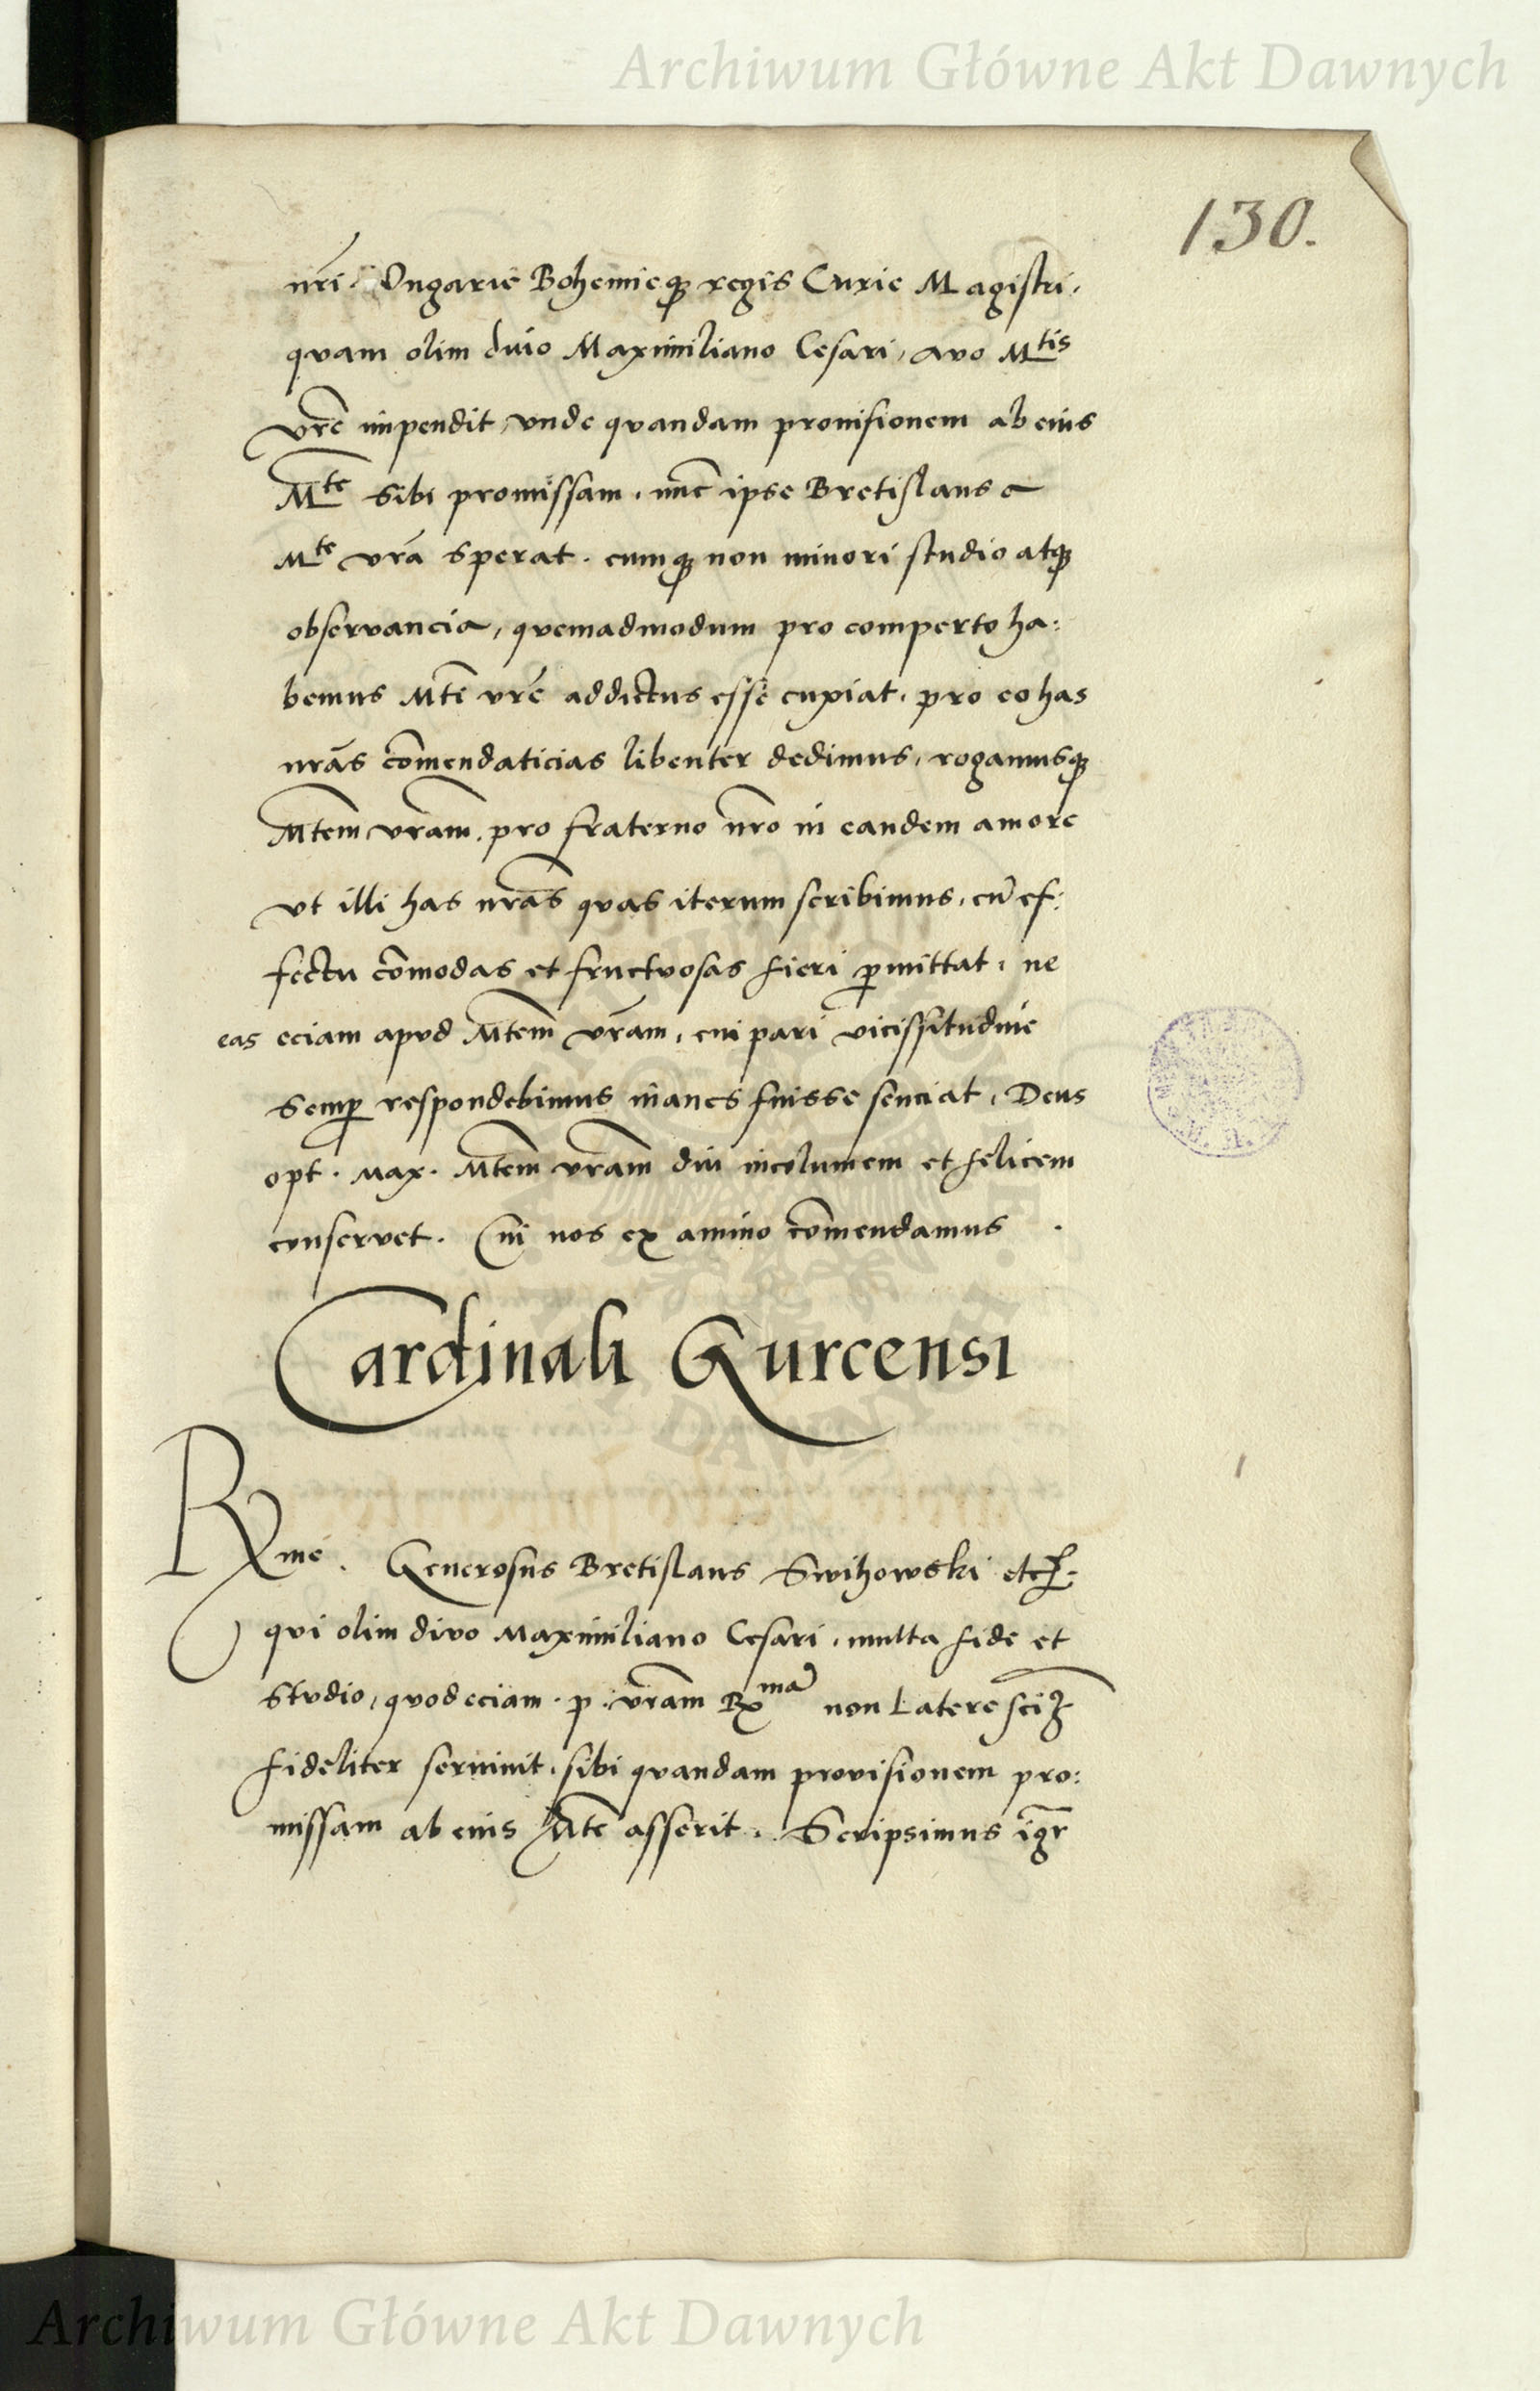 Archiwum Główne Akt Dawnych
130.
nr̃i Vngarie Bohemieq̃ regis Curie Magistri,
quam olim diuo Maximiliano Cesari, auo Mtis
vr̃e impendit, vnde quandam prouisionem ab eius
Mte sibi promissam, nũc ipse Bretislaus a
Mte vr̃a sperat. cumq̃ non minori studio atq̃
observancia, quemadmodum pro comperto ha:
bemus Mti vr̃e addictus esse cupiat, pro eo has
nr̃as cõmendaticias libenter dedimus, rogamusq̃
Mtem vr̃am, pro fraterno nr̃o in eandem amore
vt illi has nr̃as quas iterum scribimus, cũ ef:
fectu cõmodas et fructuosas fieri p̲mittat, ne
eas eciam apud Mtem vr̃am, cui pari vicissitudine
semp̲ respondebimus inanes fuisse senciat, Deus
opt. Max. Mtem vr̃am diu incolumem et felicem
conservet. Cui nos ex animo cõmendamus.
Cardinali Gurcensi
Rme. Generosus Bretislaus Swihowski etc.
qui olim divo Maximiliano Cesari, multa fide et
studio, quod eciam .p. vr̃am Rx̃mã non Latere
fideliter seruiuit, sibi quandam provisionem pro:
missam ab eius Mte asserit. Scripsimus igr̃
Archiwum Główne Akt Dawnych